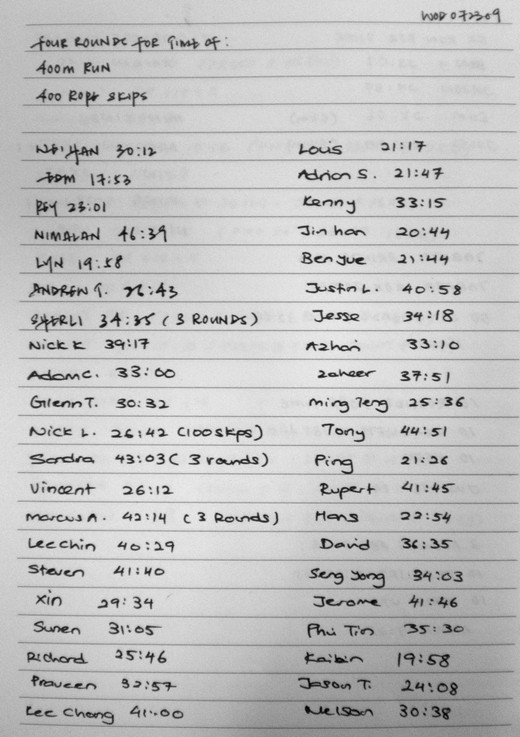 WOD 072309
FOUR ROUNDS FOR TIME OF:
400m RUN
400 ROPE SKIPS
WEI YAN 30:12
17:53
PSY 23:01
NIMALAN 46:39
LYN 19:58
ANDREW T. :43
SHERLI 34:35 (3 ROUNDS)
Nick K 39:17
Adam C. 33:00
Glenn T. 30:32
Nick L. 26:42 (100 skps)
Sandra 43:03 (3 rounds)
Vincent 26:12
Marcus A. 42:14 (3 Rounds)
Lee Chin 40:29
Steven 41:40
Xin 29:34
Sunen 31:05
Richard 25:46
Praveen 32:57
Kee Chong 41:00
Louis 21:17
Adrian S. 21:47
Kenny 33:15
Jin han 20:44
Ben Yue 21:44
Justin L. 40:58
Jesse 34:18
Azhari 33:10
zaheer 37:51
Ming Jeng 25:36
Tony 44:51
Ping 21:26
Rupert 41:45
Hans 22:54
David 36:35
Seng Song 34:03
Jerome 41:46
Phu Tin 35:30
Kaibin 19:58
Jason T. 24:08
Nelson 30:38